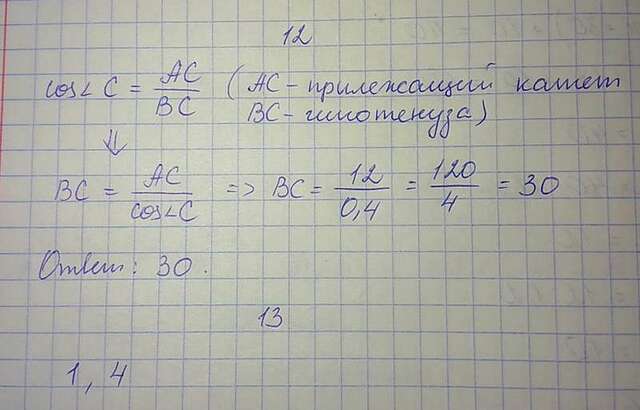 12
cos∠C = AC/BC (AC - прилежащий катет
BC - гипотенуза)
⇓
BC = AC/cos∠C => BC = 12/0,4 = 120/4 = 30
Ответ: 30.
13
1, 4